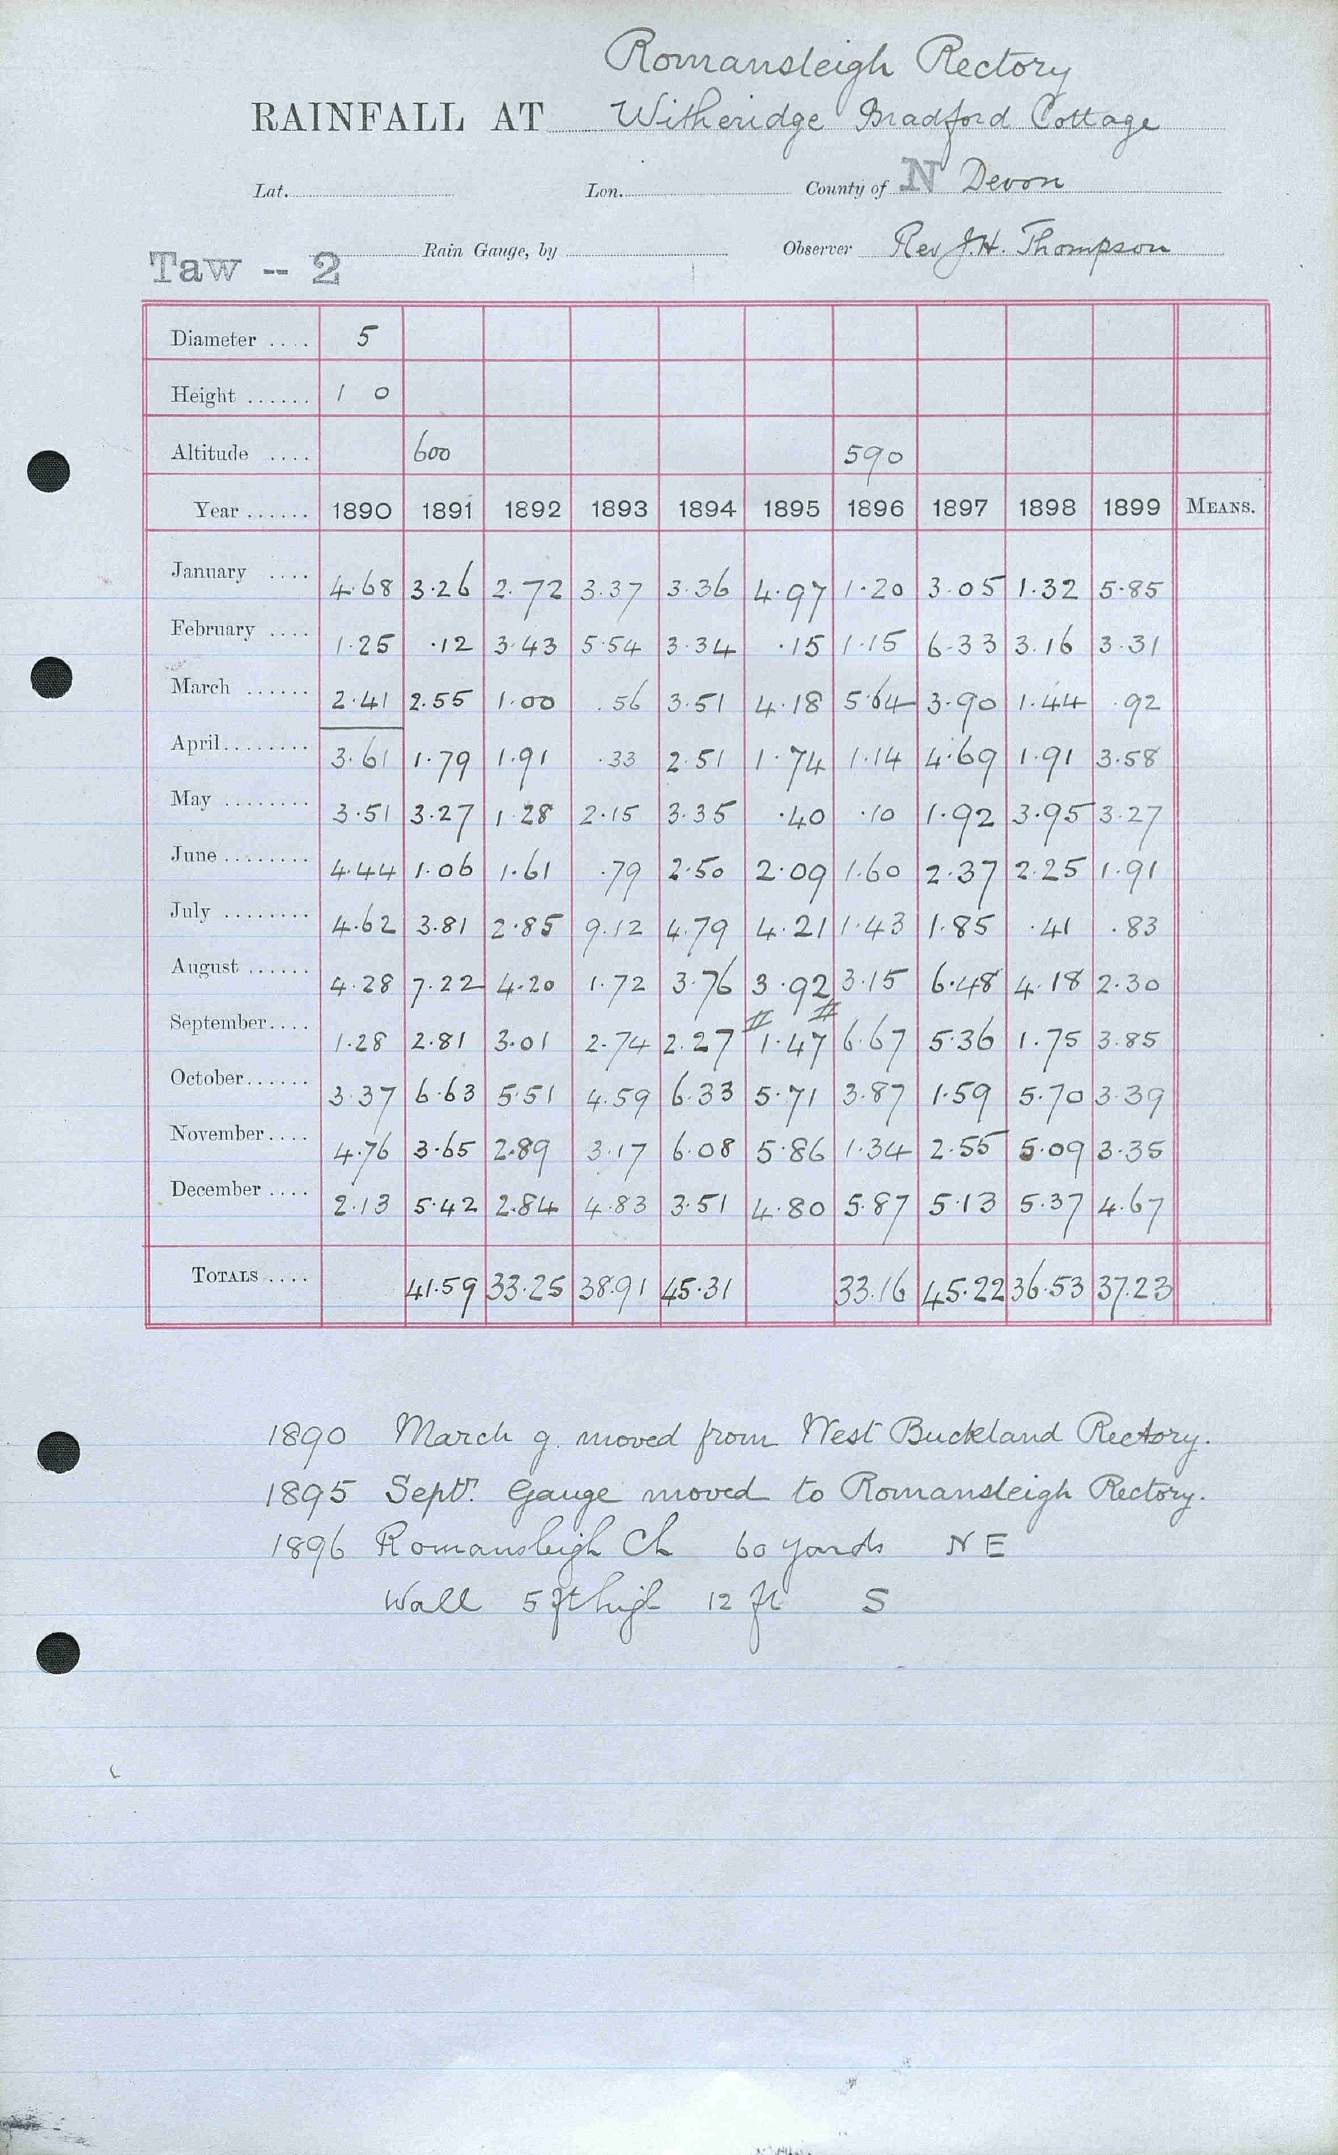 Romansleigh Rectory
RAINFALL AT Witheridge Bradford Cottage
Lat. Lon. County of N Devon
Taw -- 2 Rain Gauge, by Observer Rev J.H. Thompson
Diameter .... 5
Height ...... 1 0
Altitude .... 600 590
Year ...... 1890 1891 1892 1893 1894 1895 1896 1897 1898 1899 MEANS.
January .... 4.68 3.26 2.72 3.37 3.36 4.97 1.20 3.05 1.32 5.85
February .... 1.25 .12 3.43 5.54 3.34 .15 1.15 6.33 3.16 3.31
March ...... 2.41 2.55 1.00 .56 3.51 4.18 5.64 3.90 1.44 .92
April........ 3.61 1.79 1.91 .33 2.51 1.74 1.14 4.69 1.91 3.58
May ........ 3.51 3.27 1.28 2.15 3.35 .40 .10 1.92 3.95 3.27
June ........ 4.44 1.06 1.61 .79 2.50 2.09 1.60 2.37 2.25 1.91
July ........ 4.62 3.81 2.85 9.12 4.79 4.21 1.43 1.85 .41 .83
August ...... 4.28 7.22 4.20 1.72 3.76 3.92 3.15 6.48 4.18 2.30
September.... 1.28 2.81 3.01 2.74 2.27 1.47 6.67 5.36 1.75 3.85
October...... 3.37 6.63 5.51 4.59 6.33 5.71 3.87 1.59 5.70 3.39
November.... 4.76 3.65 2.89 3.17 6.08 5.86 1.34 2.55 5.09 3.35
December .... 2.13 5.42 2.84 4.83 3.51 4.80 5.87 5.13 5.37 4.67
TOTALS .... 41.59 33.25 38.91 45.31 33.16 45.22 36.53 37.23
1890 March 9. moved from West Buckland Rectory.
1895 Septr. Gauge moved to Romansleigh Rectory.
1896 Romansleigh Ch 60 yards NE
Wall 5 ft high 12 ft S